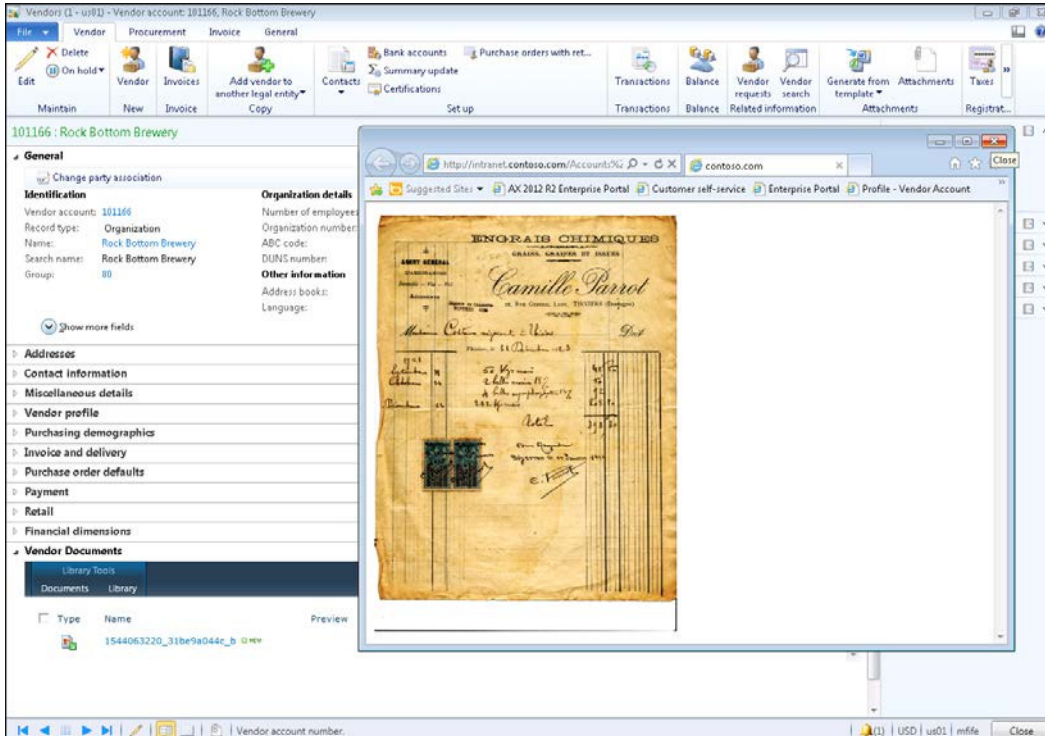 Vendors (1 - us01) - Vendor account: 101166, Rock Bottom Brewery
File Vendor Procurement Invoice General
Edit
Delete
On hold
Maintain
Vendor
New
Invoices
Invoice
Add vendor to
another legal entity
Copy
Contacts
Bank accounts
Summary update
Certifications
Purchase orders with ret...
Set up
Transactions
Transactions
Balance
Balance
Vendor
requests
Vendor
search
Related information
Generate from
template
Attachments
Attachments
Taxes
Registrat...
101166 : Rock Bottom Brewery
General
Change party association
Identification
Vendor account: 101166
Record type: Organization
Name: Rock Bottom Brewery
Search name: Rock Bottom Brewery
Group: 80
Organization details
Number of employees
Organization number:
ABC code:
DUNS number:
Other information
Address books:
Language:
Show more fields
Addresses
Contact information
Miscellaneous details
Vendor profile
Purchasing demographics
Invoice and delivery
Purchase order defaults
Payment
Retail
Financial dimensions
Vendor Documents
Library Tools
Documents Library
Type Name Preview
1544063220_31be9a044c_b NEW
Close
http://intranet.contoso.com/Accounts%2
contoso.com
Suggested Sites AX 2012 R2 Enterprise Portal Customer self-service Enterprise Portal Profile - Vendor Account
ENGRAIS CHIMIQUES
GRAINS, GRAINES ET ISSUES
AGENT GÉNÉRAL
Camille Parrot
Doit
Total
Vendor account number.
(1) USD us01 mfife Close